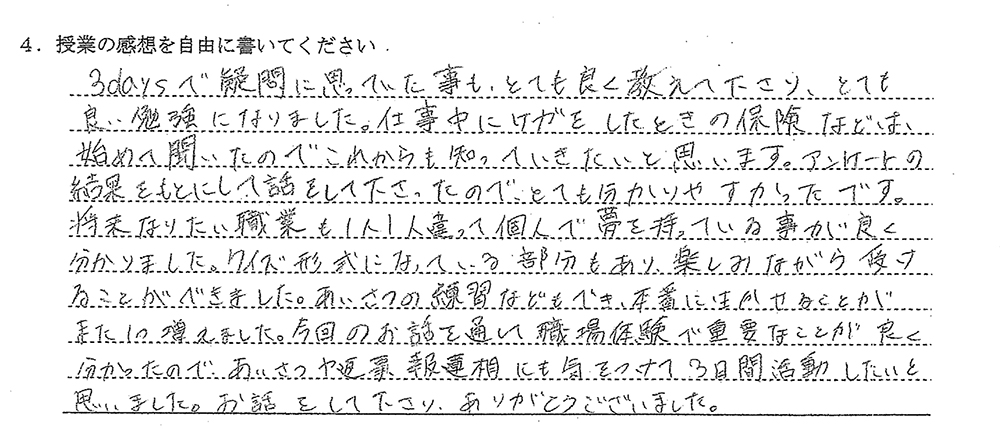 4. 授業の感想を自由に書いてください.
3daysで疑問に思っていた事も、とても良く教えて下さり、とても
良い勉強になりました。仕事中にけがをしたときの保険などは、
始めて聞いたのでこれからも知っていきたいと思います。アンケートの
結果をもとにして話をして下さったので、とても分かりやすかったです。
将来なりたい職業も1人1人違って個人で夢を持っている事が良く
分かりました。クイズ形式になっている部分もあり、楽しみながら受け
ることができました。あいさつの練習などもでき、本番に生かせることが
また1つ増えました。今回のお話を通して職場体験で重要なことが良く
分かったので、あいさつや返事、報連相にも気をつけて3日間活動したいと
思いました。お話をして下さり、ありがとうございました。